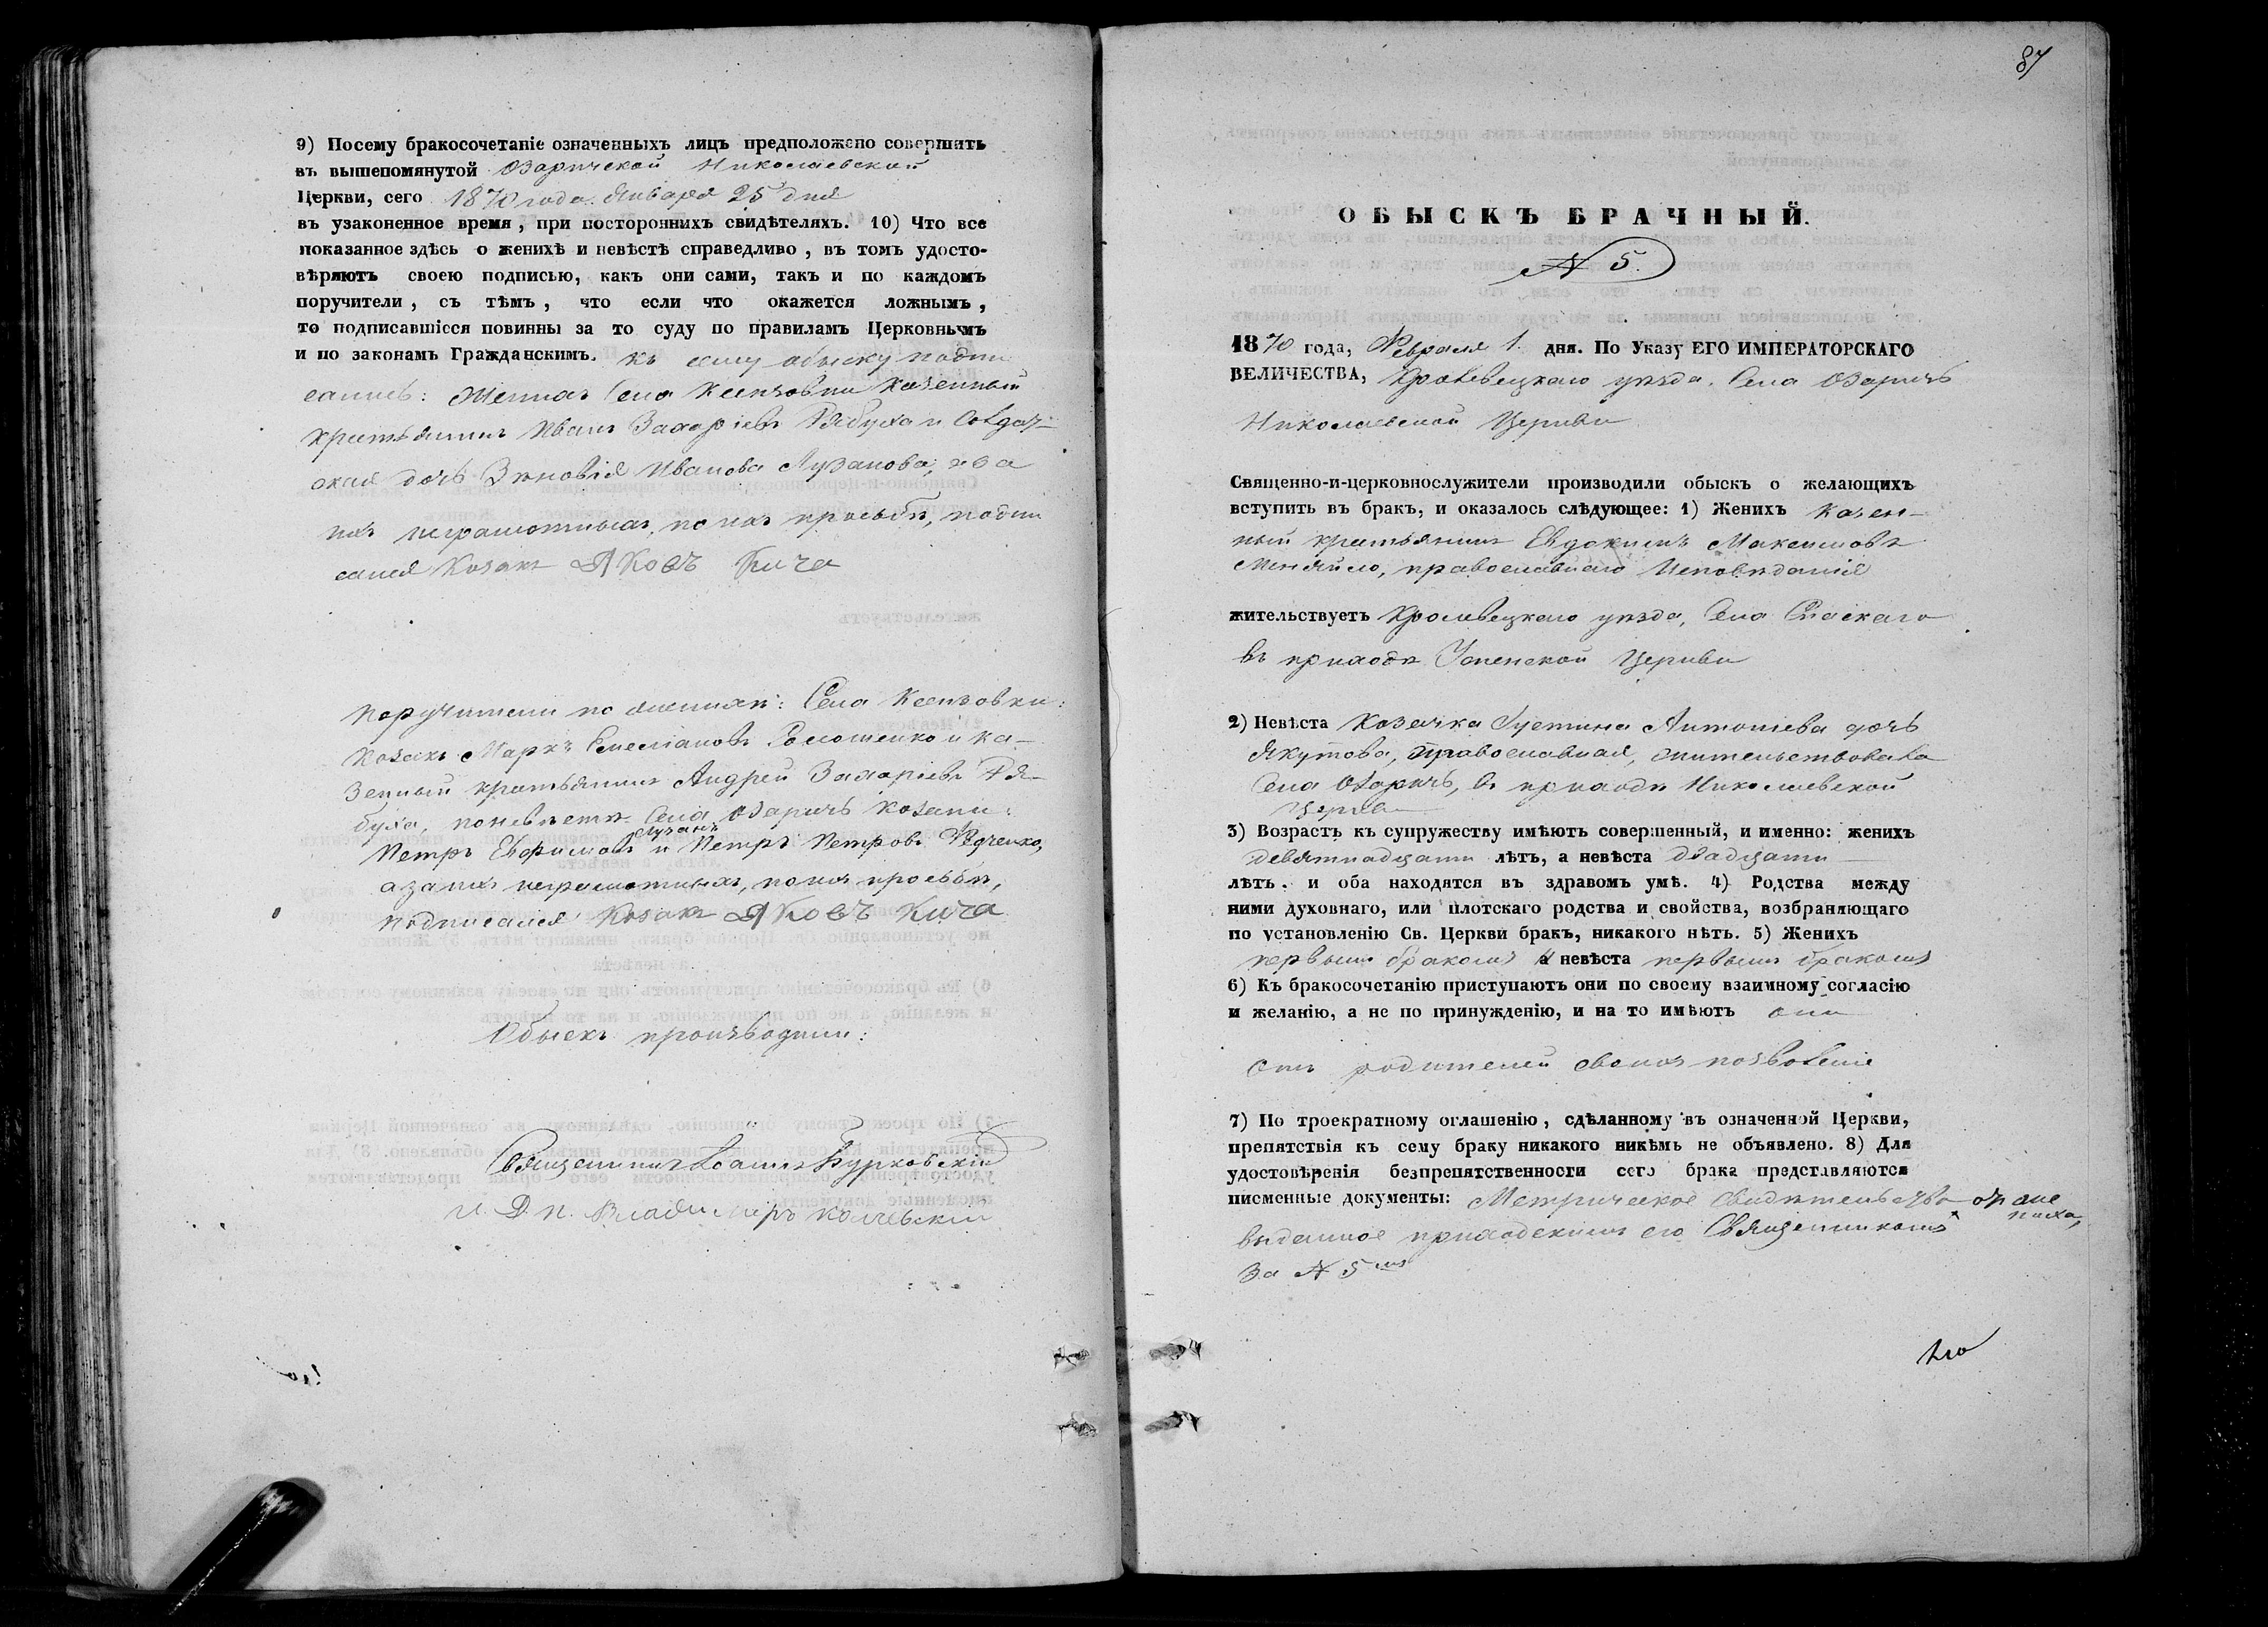 9) Посему бракосочетаніе означенныхъ лицъ предположено совершить
въ вышепомянутой Озаричской Николаевской
Церкви, сего 1870 года. Января 25 дня
въ узаконенное время, при постороннихъ свидѣтеляхъ. 10) Что все
показанное здѣсь о женихѣ и невѣстѣ справедливо, въ томъ удосто-
вѣряютъ своею подписью, какъ они сами, такъ и по каждомъ
поручители, съ тѣмъ, что если что окажется ложнымъ,
то подписавшіеся повинны за то суду по правиламъ Церковнымъ
и по законамъ Гражданскимъ. Къ сему обыску подпи
сались: Женихъ Села Ксензовки Казенный
крестьянинъ Иванъ Захаріевъ Рябуха и Солдат-
ская дочь Зѣновія Иванова Лузанова, а за
нихъ неграмотныхъ, по ихъ просьбѣ, подпи
сался Козакъ Яковъ Кича
Поручители по женихѣ: Села Ксензовки:
Козакъ Марко Емельановъ Ромошенко и Ка-
зенный крестьянинъ Андрей Захаріевъ Ря-
буха, по невѣстѣ Села Озаричъ Козаки:
Петръ Евфимовъ Лузанъ и Петръ Петровъ Федченко,
а за нихъ неграмотныхъ, по ихъ просьбѣ,
подписался Козакъ Яковъ Кича
Обыскъ производили:
Священникъ Іоаннъ Бурковскій
И. Д. П. Владиміръ
87
ОБЫСКЪ БРАЧНЫЙ.
N 5.
1870 года, Февраля 1. дня. По Указу ЕГО ИМПЕРАТОРСКАГО
ВЕЛИЧЕСТВА, Кролевецкаго уѣзда. Села Озаричъ
Николаевской Церкви
Священно-и-церковнослужители производили обыскъ о желающихъ
вступить въ бракъ, и оказалось слѣдующее: 1) Женихъ Казен-
ный крестьянинъ Евдокимъ Максимовъ
Меняйло, православнаго Исповѣданія
жительствуетъ Кролевецкаго уѣзда, Села Спаскаго
въ приходѣ Успенской Церкви
2) Невѣста Козачка Іустина Антоніева дочь
Якутова, православная, жительствовала
Села Озаричъ, въ приходѣ Николаевской
Церкви
3) Возрастъ къ супружеству имѣютъ совершенный, и именно: женихъ
девятнадцати лѣтъ, а невѣста двадцати
лѣтъ. и оба находятся въ здравомъ умѣ. 4) Родства между
ними духовнаго, или плотскаго родства и свойства, возбраняющаго
по установленію Св. Церкви бракъ, никакого нѣтъ. 5) Женихъ
первымъ бракомъ а невѣста первымъ бракомъ
6) Къ бракосочетанію приступаютъ они по своему взаимному согласію
и желанію, а не по принужденію, и на то имѣютъ они
отъ родителей своихъ позволеніе
7) По троекратному оглашенію, сдѣланному въ означенной Церкви,
препятствія къ сему браку никакого никѣмъ не объявлено. 8) Для
удостовѣренія безпрепятственности сего брака представляются
писменные документы: Метрическое свидѣтельство о жe
ниха,
выданное приходскимъ его Священникомъ
за N 5мъ